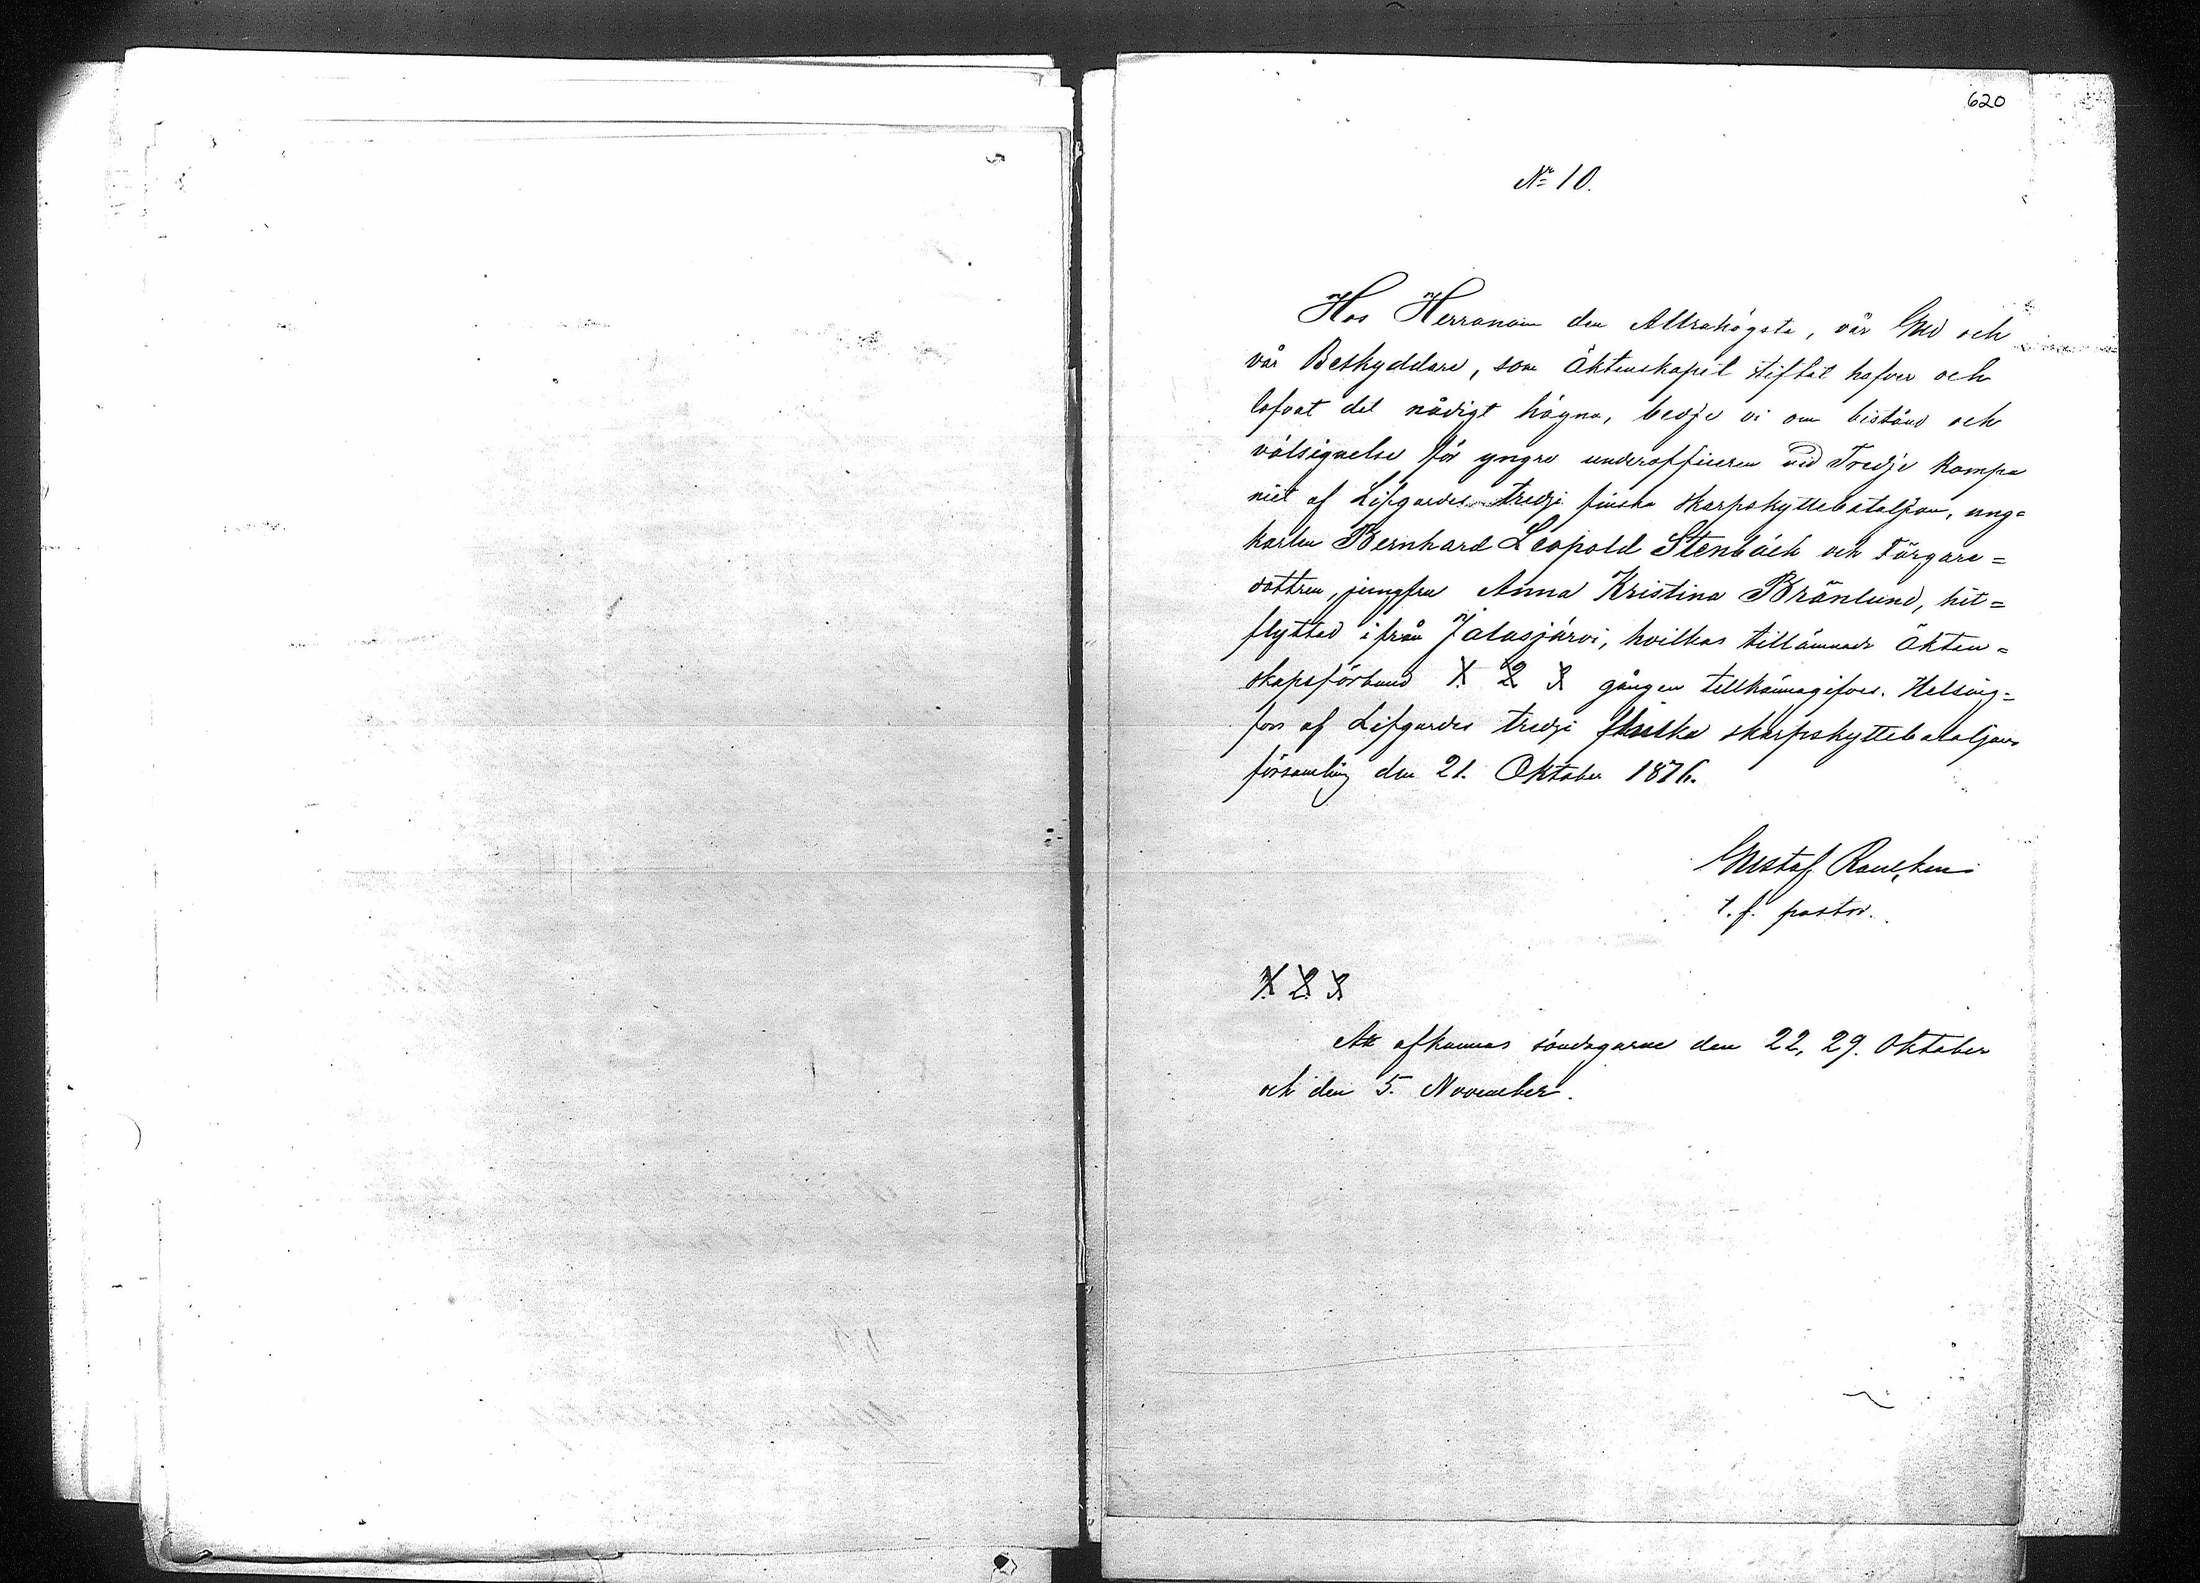 620
No 10.
Hos Herranom den Allrahögste, vår Gud och
vår Beskyddare, som Äktenskapet stiftat hafver och
lofvat det nådigt hägna, bedje vi om bistånd och
välsignelse för yngre underofficeren vid Tredje Kompa
niet af Lifgardes tredje finska skarpskyttebataljon, ung=
karlen Bernhard Leopold Stenbäck och Färgare=
dottren, jungfru Anna Kristina Bränlund, hit=
flyttad ifrån Jalasjärvi, hvilkas tillämnade äkten=
skapsförbund 1 2 3 gången tillkännagifves. Helsing=
fors af Lifgardes tredje finska skarpskyttebataljons
församling den 21. Oktober 1876.
Gustaf
t. f. pastor.
1. 2. 3.
Att afkunnas söndagarne den 22, 29. Oktober
och den 5. November.